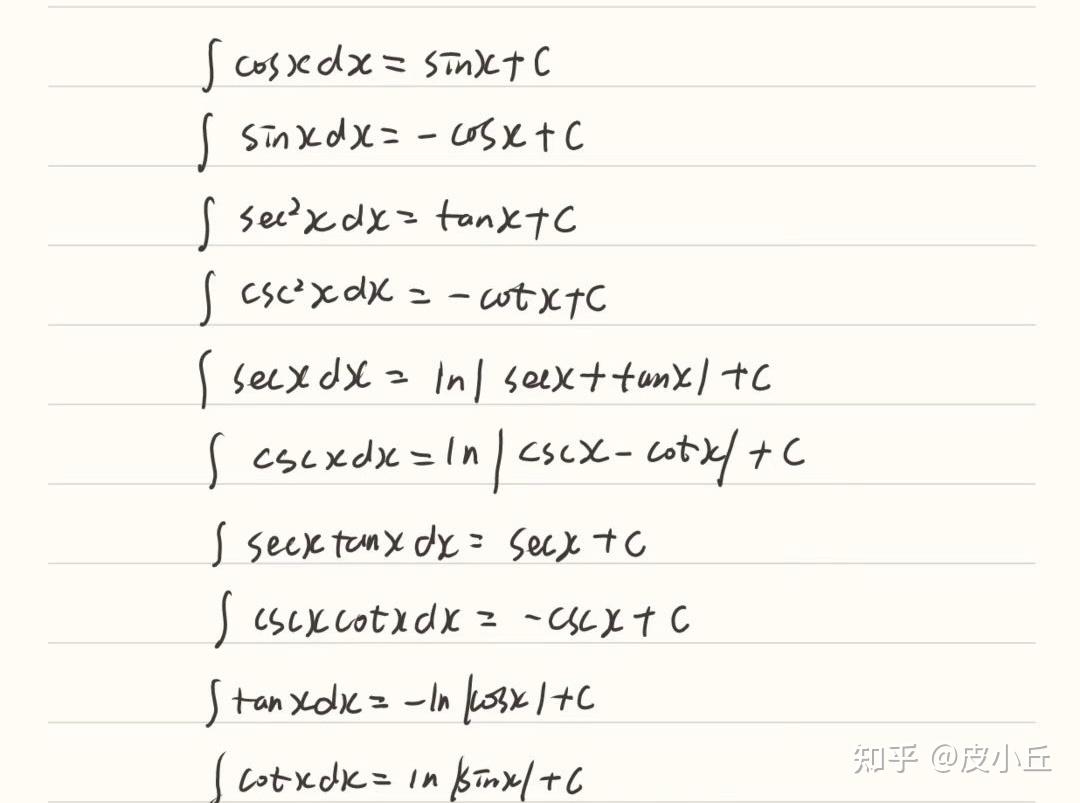 ∫ cosxdx = sinx+C
∫ sinxdx = - cosx+C
∫ sec²xdx = tanx+C
∫ csc²xdx = -cotx+C
∫ secxdx = ln| secx+tanx| +C
∫ cscxdx = ln | cscx - cotx| + C
∫ secxtanxdx = secx +C
∫ cscxcotxdx = -cscx + C
∫ tanxdx = -ln |cosx| +C
∫ cotxdx = ln |sinx| +C
知乎 @皮小丘